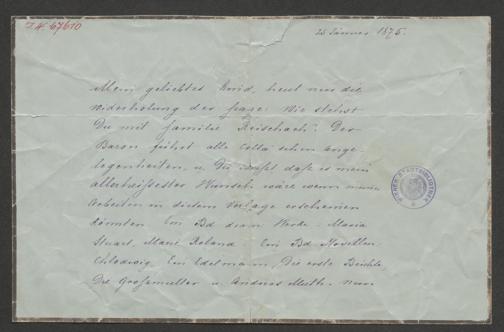 I.N. 67610
25 Jänner 1875.
Mein geliebtes Kind, heut nur die
Widerholung der frage: Wie stehst
Du mit familie Reischach? Der
Baron führt alle Cotta'schen Ange
legenheiten, u. Du weißt daß es mein
allerheißester Wunsch wäre wenn meine
Arbeiten in diesem Verlage erscheinen
könnten Ein Bd dram Werke: Maria
Stuart, Marie Roland. Ein Bd Novellen
Chlodwig. Ein Edelmann, Die erste Beichte,
Die Großmutter u. Nun
WIENER STADTBIBLIOTHEK